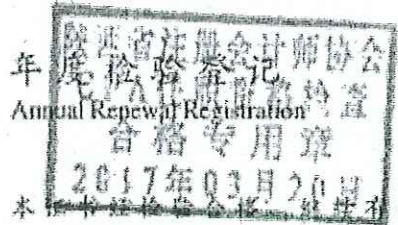 省注册会计师协会
年度检验登记
Annual Renewal Registration
合格专用章
2017年03月20日
本证书经检验合格，继续有